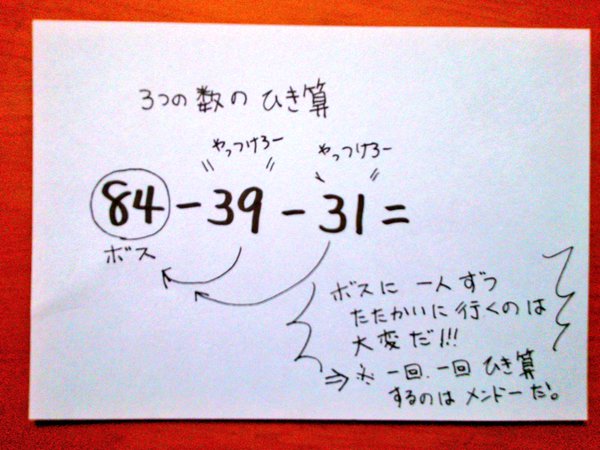 3つの数のひき算
やっつけろー
やっつけろー
84-39-31=
ボス
ボスに一人ずつ
たたかいに行くのは
大変だ!!!
⇒※一回、一回ひき算
するのはメンドーだ。